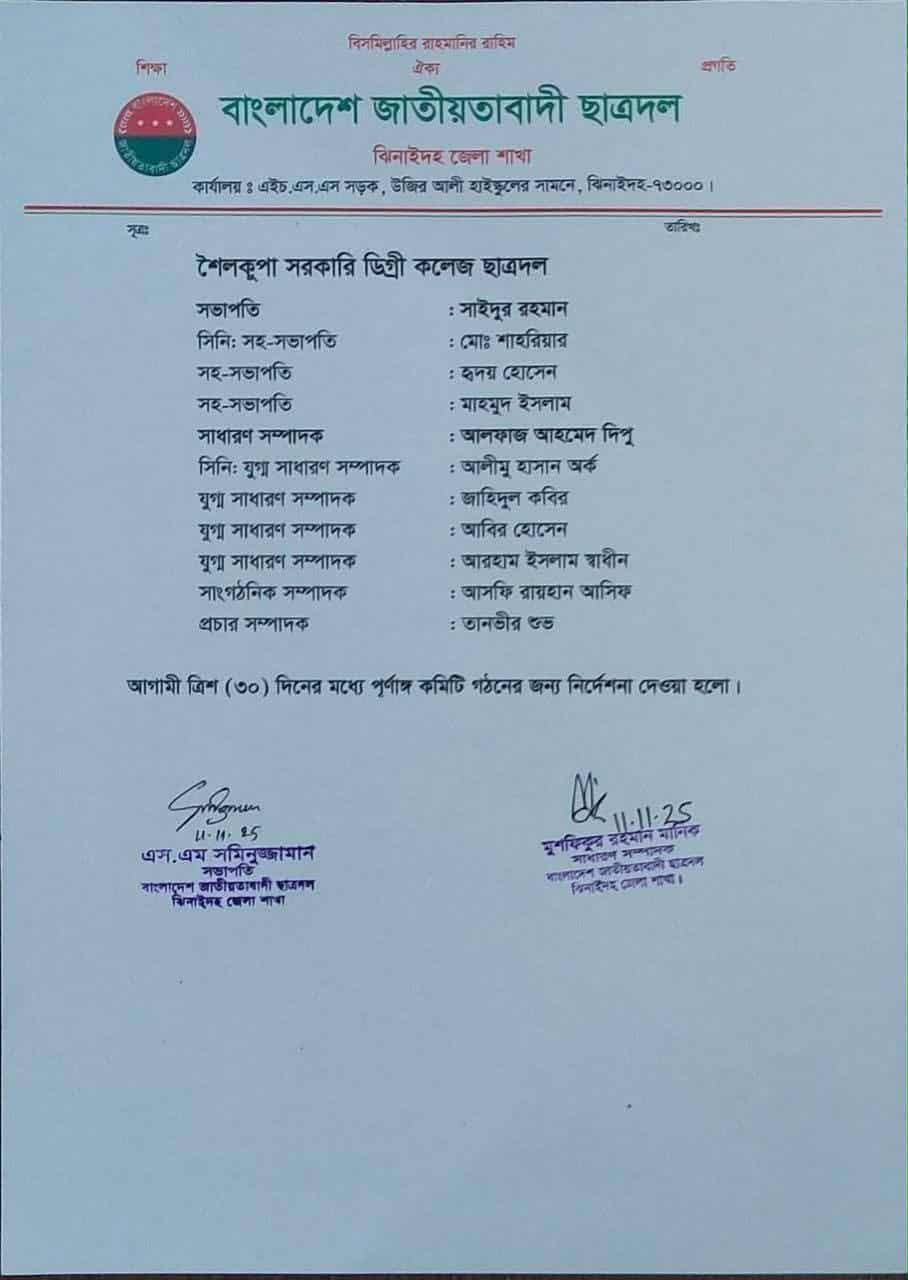 বিসমিল্লাহির রাহমানির রাহিম
শিক্ষা ঐক্য প্রগতি
বাংলাদেশ জাতীয়তাবাদী ছাত্রদল
ঝিনাইদহ জেলা শাখা
কার্যালয় ঃ এইচ.এস.এস সড়ক, উজির আলী হাইস্কুলের সামনে, ঝিনাইদহ-৭৩০০০।
সূত্রঃ তারিখঃ
শৈলকুপা সরকারি ডিগ্রী কলেজ ছাত্রদল
সভাপতি : সাইদুর রহমান
সিনি: সহ-সভাপতি : মোঃ শাহরিয়ার
সহ-সভাপতি : হৃদয় হোসেন
সহ-সভাপতি : মাহমুদ ইসলাম
সাধারণ সম্পাদক : আলফাজ আহমেদ দিপু
সিনি: যুগ্ম সাধারণ সম্পাদক : আলীমু হাসান অর্ক
যুগ্ম সাধারণ সম্পাদক : জাহিদুল কবির
যুগ্ম সাধারণ সম্পাদক : আবির হোসেন
যুগ্ম সাধারণ সম্পাদক : আরহাম ইসলাম স্বাধীন
সাংগঠনিক সম্পাদক : আসফি রায়হান আসিফ
প্রচার সম্পাদক : তানভীর শুভ
আগামী ত্রিশ (৩০) দিনের মধ্যে পূর্ণাঙ্গ কমিটি গঠনের জন্য নির্দেশনা দেওয়া হলো।
11.11.25
এস.এম সমিনুজ্জামান
সভাপতি
বাংলাদেশ জাতীয়তাবাদী ছাত্রদল
ঝিনাইদহ জেলা শাখা
11.11.25
মুশফিকুর রহমান মানিক
সাধারণ সম্পাদক
বাংলাদেশ জাতীয়তাবাদী ছাত্রদল
ঝিনাইদহ জেলা শাখা।